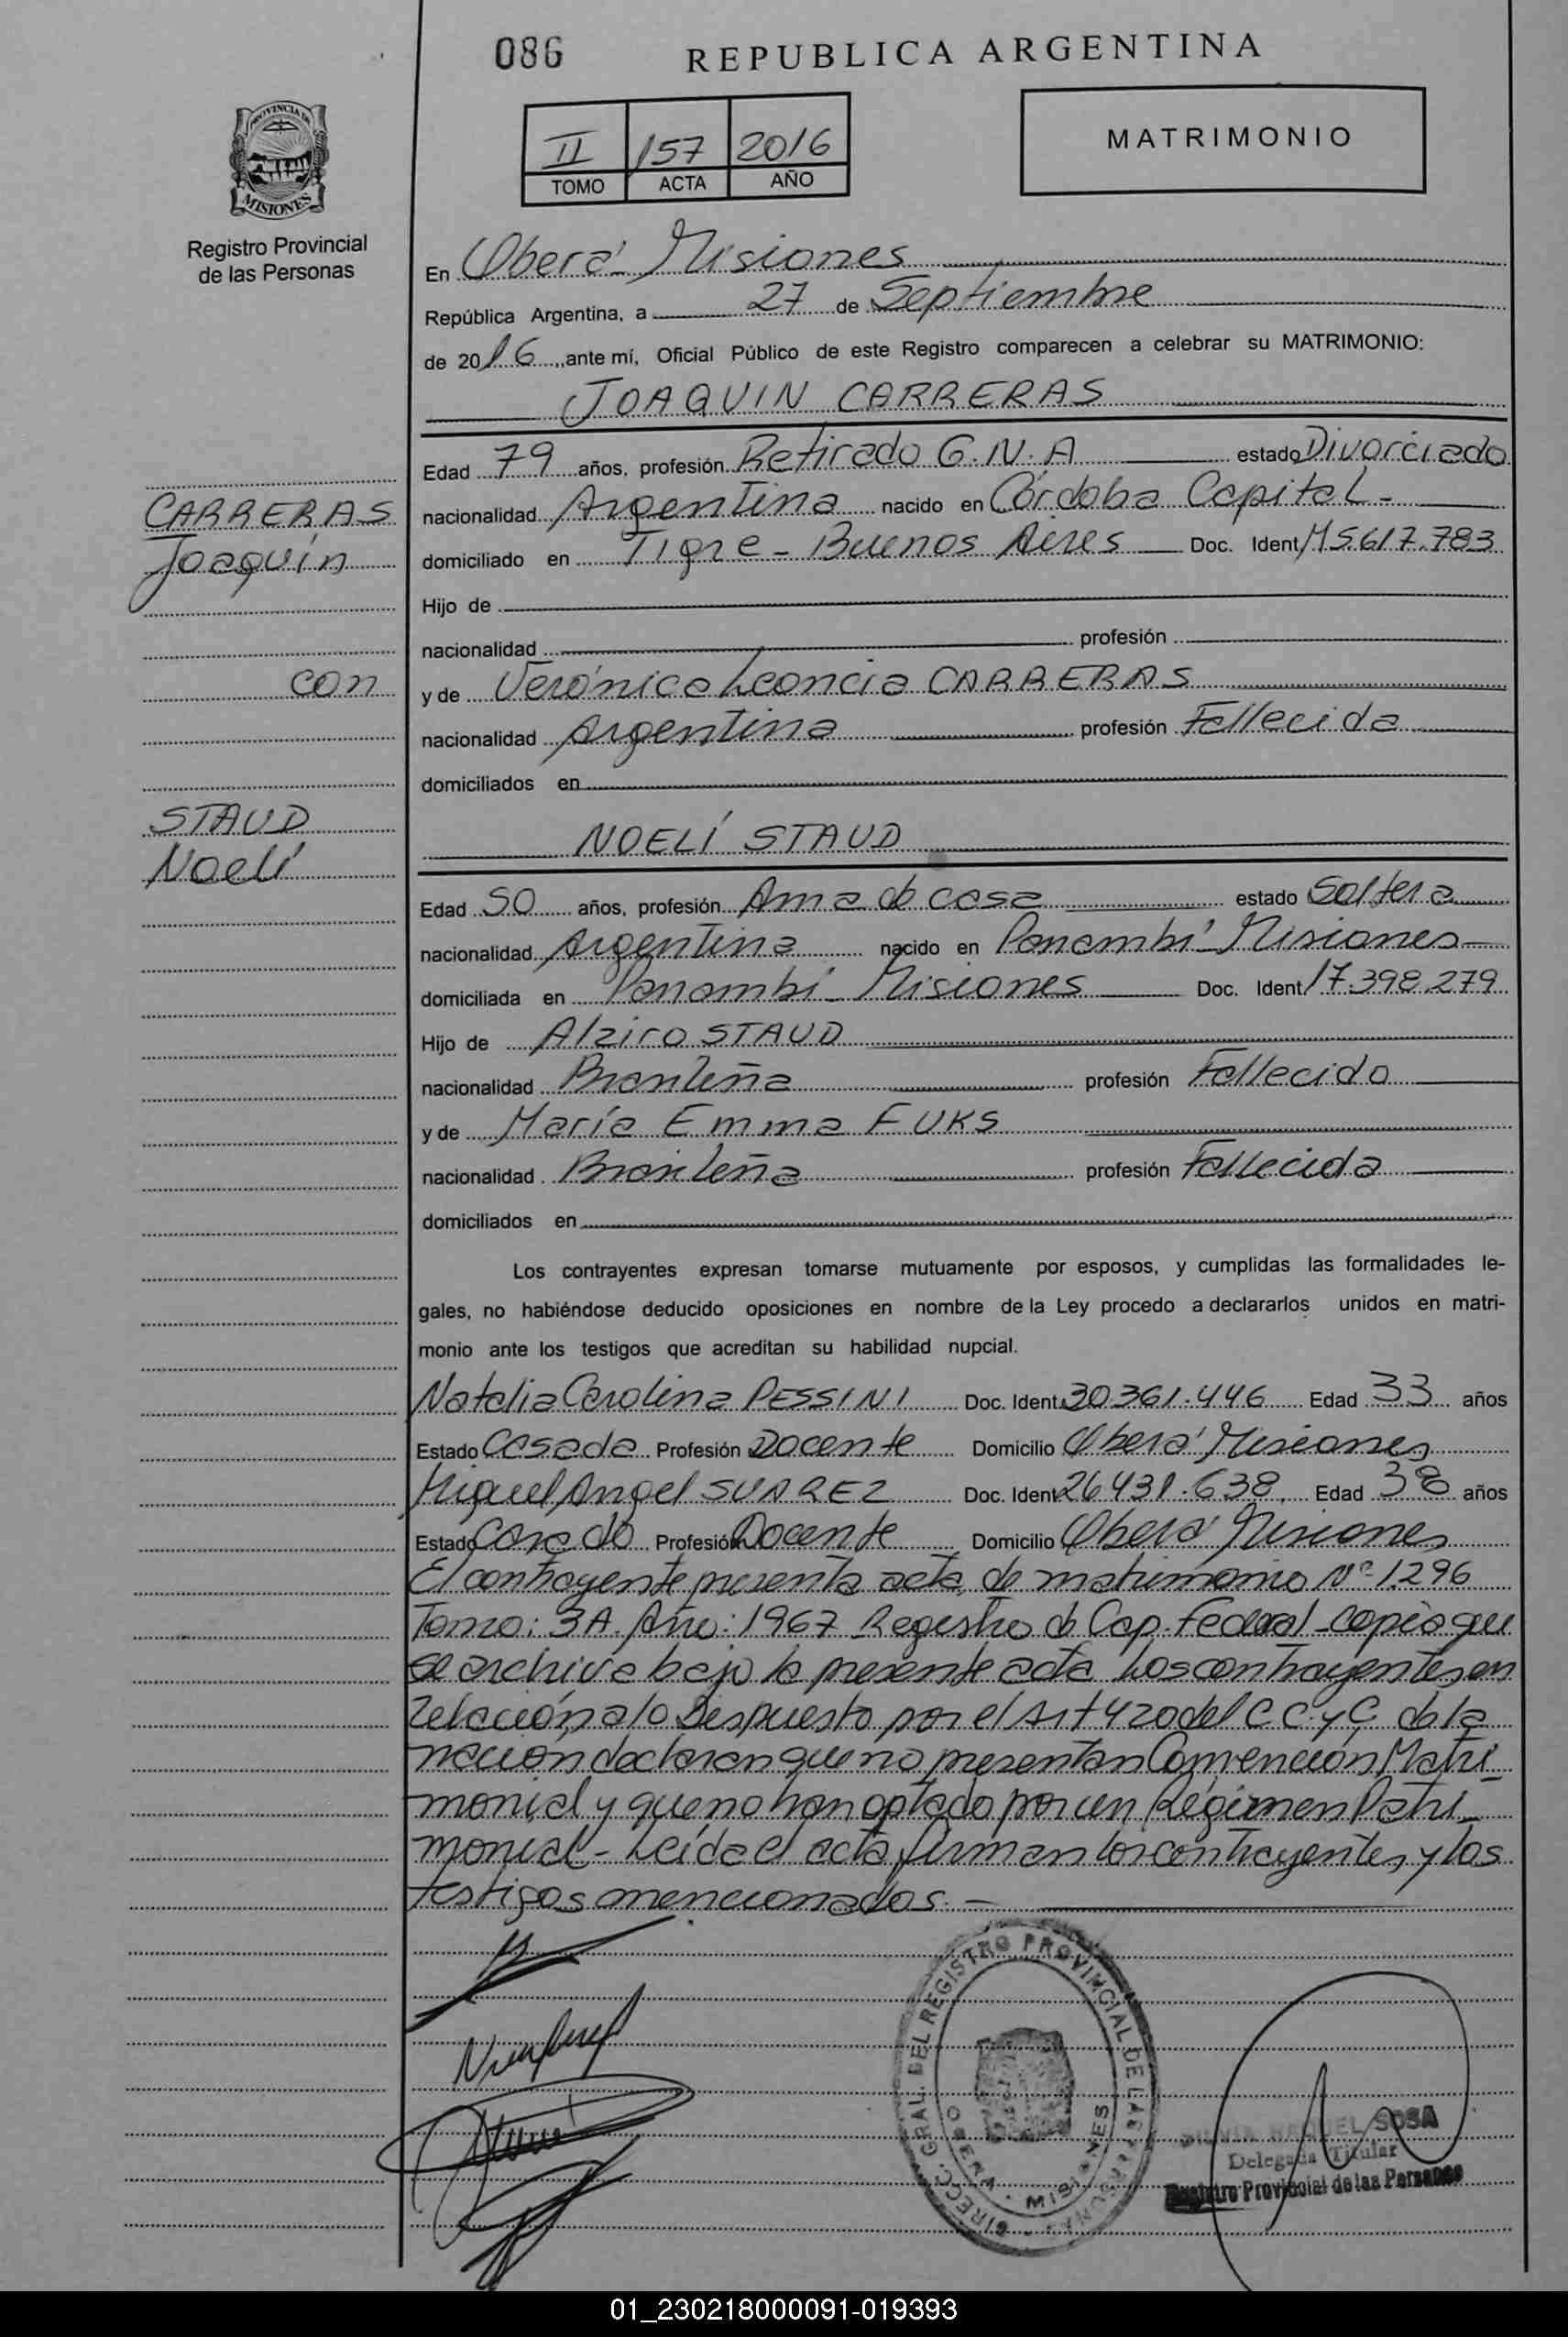 086
REPUBLICA ARGENTINA
II 157 2016
TOMO ACTA AÑO
MATRIMONIO
PROVINCIA DE
MISIONES
Registro Provincial
de las Personas
En Oberá - Misiones
República Argentina, a 27 de Septiembre
de 2016, ante mí, Oficial Público de este Registro comparecen a celebrar su MATRIMONIO:
JOAQUIN CARRERAS
Edad 79 años, profesión Retirado G.N.A estado Divorciado
nacionalidad Argentina nacido en Córdoba Capital -
domiciliado en Tigre - Buenos Aires Doc. Ident M5.617.783
Hijo de
nacionalidad profesión
y de Verónica Leoncia CARRERAS
nacionalidad Argentina profesión Fallecida
domiciliados en
CARRERAS
Joaquín
con
STAUD
Noelí
NOELÍ STAUD
Edad 50 años, profesión Ama de casa estado Soltera
nacionalidad Argentina nacido en Panambí - Misiones
domiciliada en Panambí - Misiones Doc. Ident 17.398.279
Hijo de Alziro STAUD
nacionalidad Brasileña profesión Fallecido
y de María Emma FUKS
nacionalidad Brasileña profesión Fallecida
domiciliados en
Los contrayentes expresan tomarse mutuamente por esposos, y cumplidas las formalidades le-
gales, no habiéndose deducido oposiciones en nombre de la Ley procedo a declararlos unidos en matri-
monio ante los testigos que acreditan su habilidad nupcial.
Natalia Carolina PESSINI Doc. Ident 30361.446 Edad 33 años
Estado Casada Profesión Docente Domicilio Oberá Misiones
Miguel Angel SUAREZ Doc. Ident 26431.638 Edad 38 años
Estado Casado Profesión Docente Domicilio Oberá Misiones
El contrayente presenta acta de matrimonio Nº 1.296
Tomo: 3A. Año: 1967 Registro de Cap. Federal - copia que
se archiva bajo la presente acta Los contrayentes en
relación a lo Dispuesto por el Art 420 del C.C.y C. de la
nación declaran que no presentan Convención Matri-
monial y que no han optado por un Régimen Patri-
monial - Leída el acta firman los contrayentes y los
testigos mencionados. -
DIRECC. GRAL. DEL REGISTRO PROVINCIAL DE LAS PERSONAS
MISIONES
SILVIA RAQUEL SOSA
Delegada Titular
Registro Provincial de las Personas
01_230218000091-019393